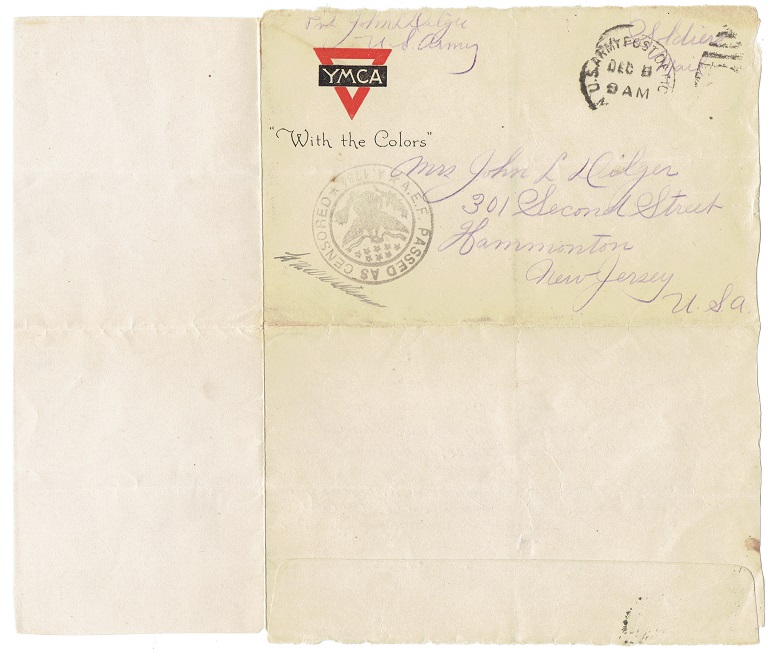 Pvt John L Dilger
U.S. Army
Soldiers
Mail
U.S. ARMY POST OFFIC
DEC 8
9 AM
YMCA
"With the Colors"
A.E.F. PASSED AS CENSORED
Mrs John L Dilger
301 Second Street
Hammonton
New Jersey
U. S a.